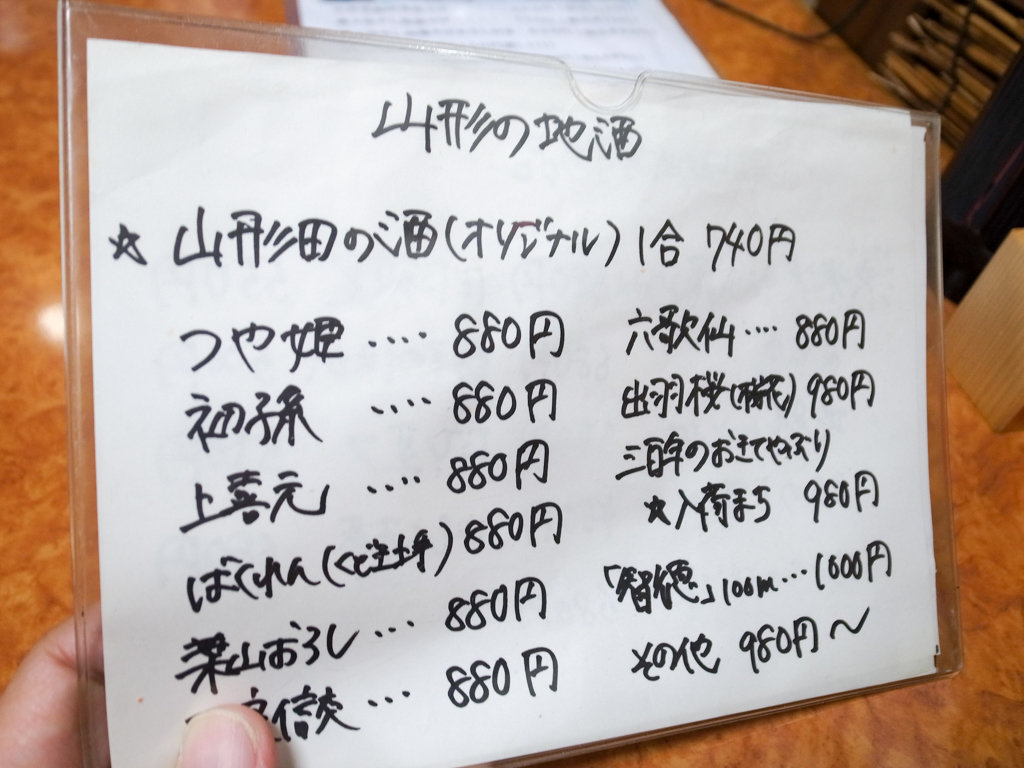 山形の地酒
☆ 山形田の酒(オリジナル) 1合 740円
つや姫 ‥‥ 880円
初孫 ‥‥ 880円
上喜元 ‥‥ 880円
ばくれん(くどき上手) 880円
山おろし ‥‥ 880円
信 ‥‥ 880円
六歌仙 ‥‥ 880円
出羽桜(桜花) 980円
三百年のおきてやぶり
☆入荷まち 980円
「智徳」100m ‥‥ 1000円
その他 980円〜